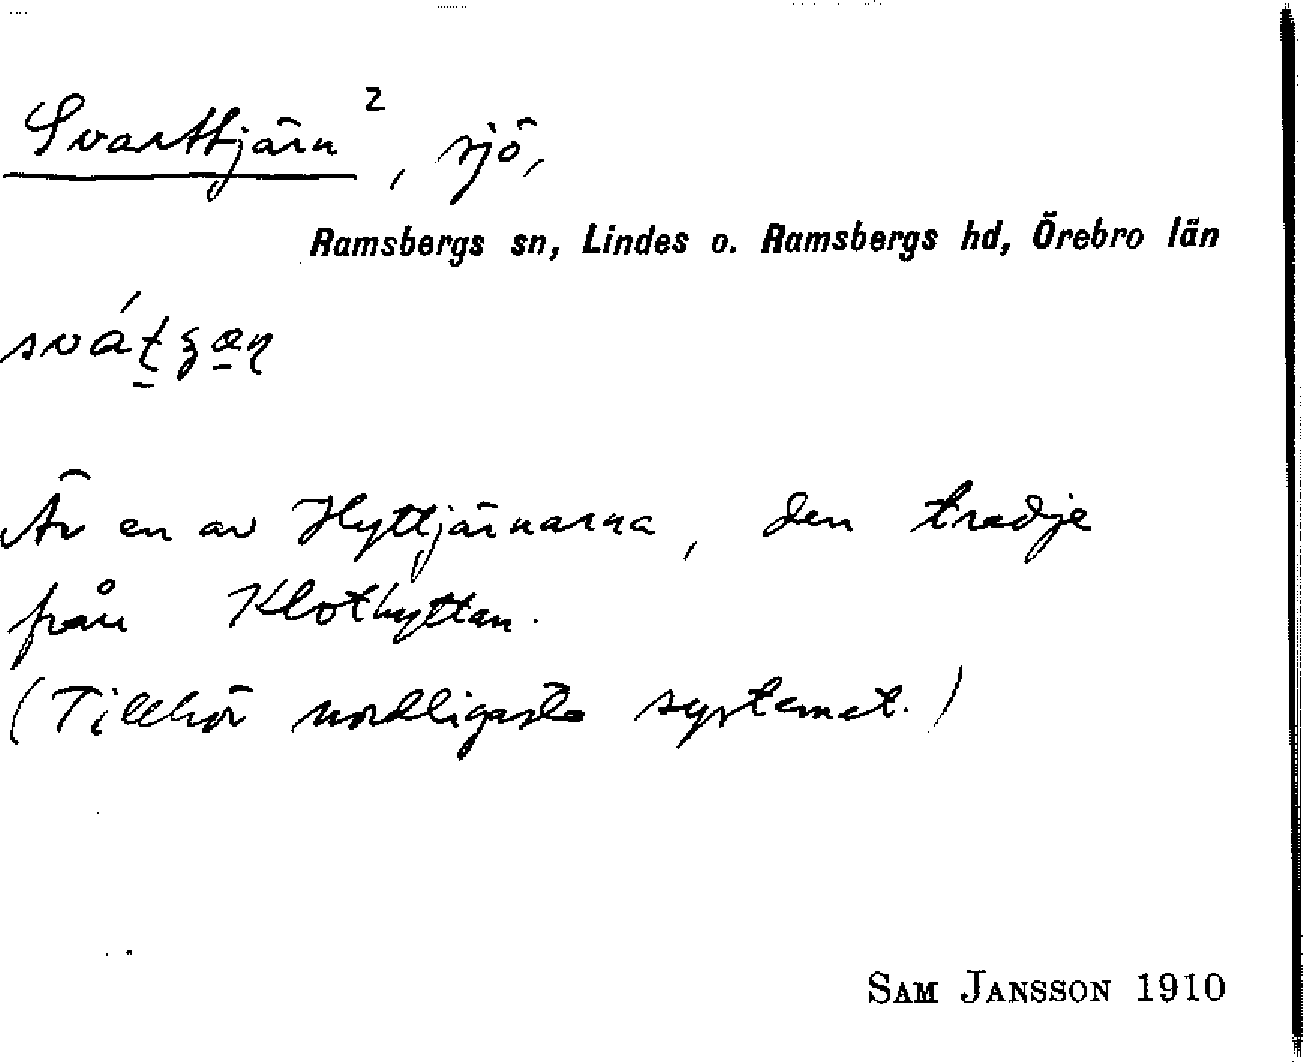 Svarttjärn², sjö,
Ramsbergs sn, Lindes o. Ramsbergs hd, Örebro län
Är en av Hyttjärnarna, den tredje
från Klothyttan.
(Tillhör nordligaste systemet.)
SAM JANSSON 1910